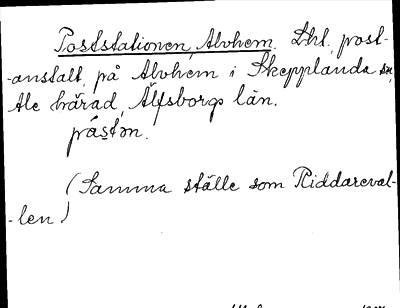 Poststationen, Alvhem. Lht. post-
-anstalt på Alvhem i Skepplanda sn,
Ale härad, Älfsborgs län.
påstən.
(Samma ställe som Riddareval-
-len)